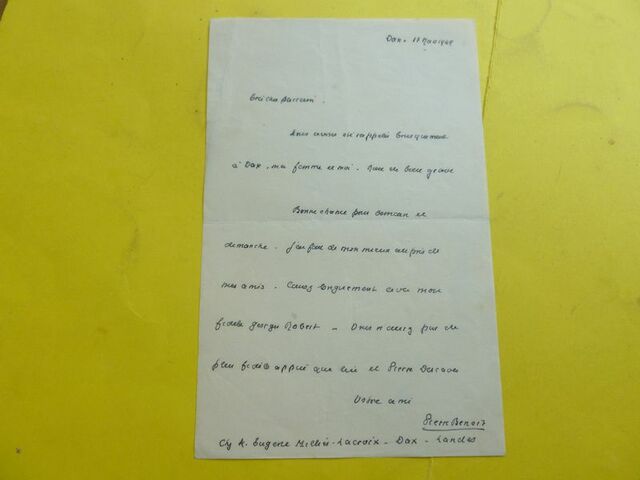 Dax. 17 Mai 1949
Très cher
Nous avons été rappelés brusquement
à Dax, ma femme et moi. Rien de bien grave
Bonne chance pour demain et
dimanche. J'ai fait de mon mieux auprès de
mes amis. Causé longuement avec mon
fidèle Georges Robert - Vous n'aurez pas de
plus fidèle appui que lui et Pierre
Votre ami
Pierre Benoit
Chez M. Eugène Milliès-Lacroix - Dax - Landes